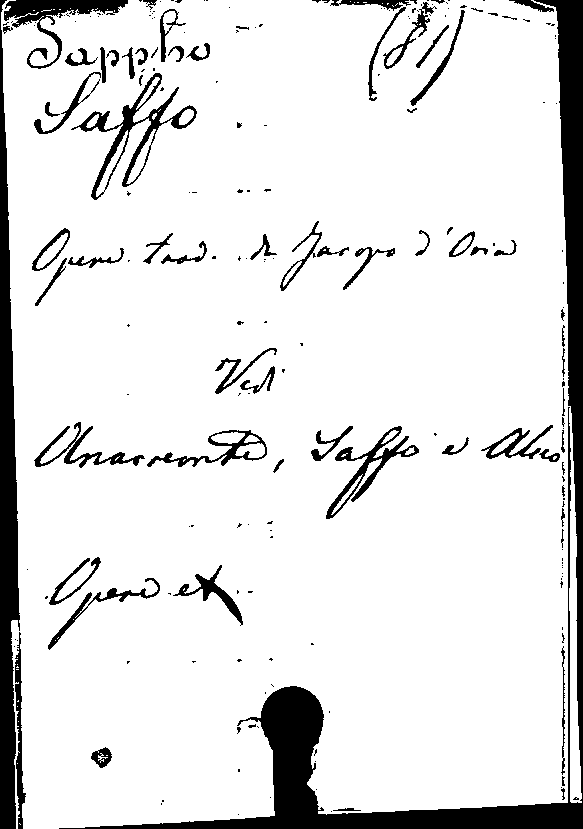 Sappho (81)
Saffo
Opere trad. da Jacopo d'Oria
Vedi
Anacreonte, Saffo e Alceo
Opere ec